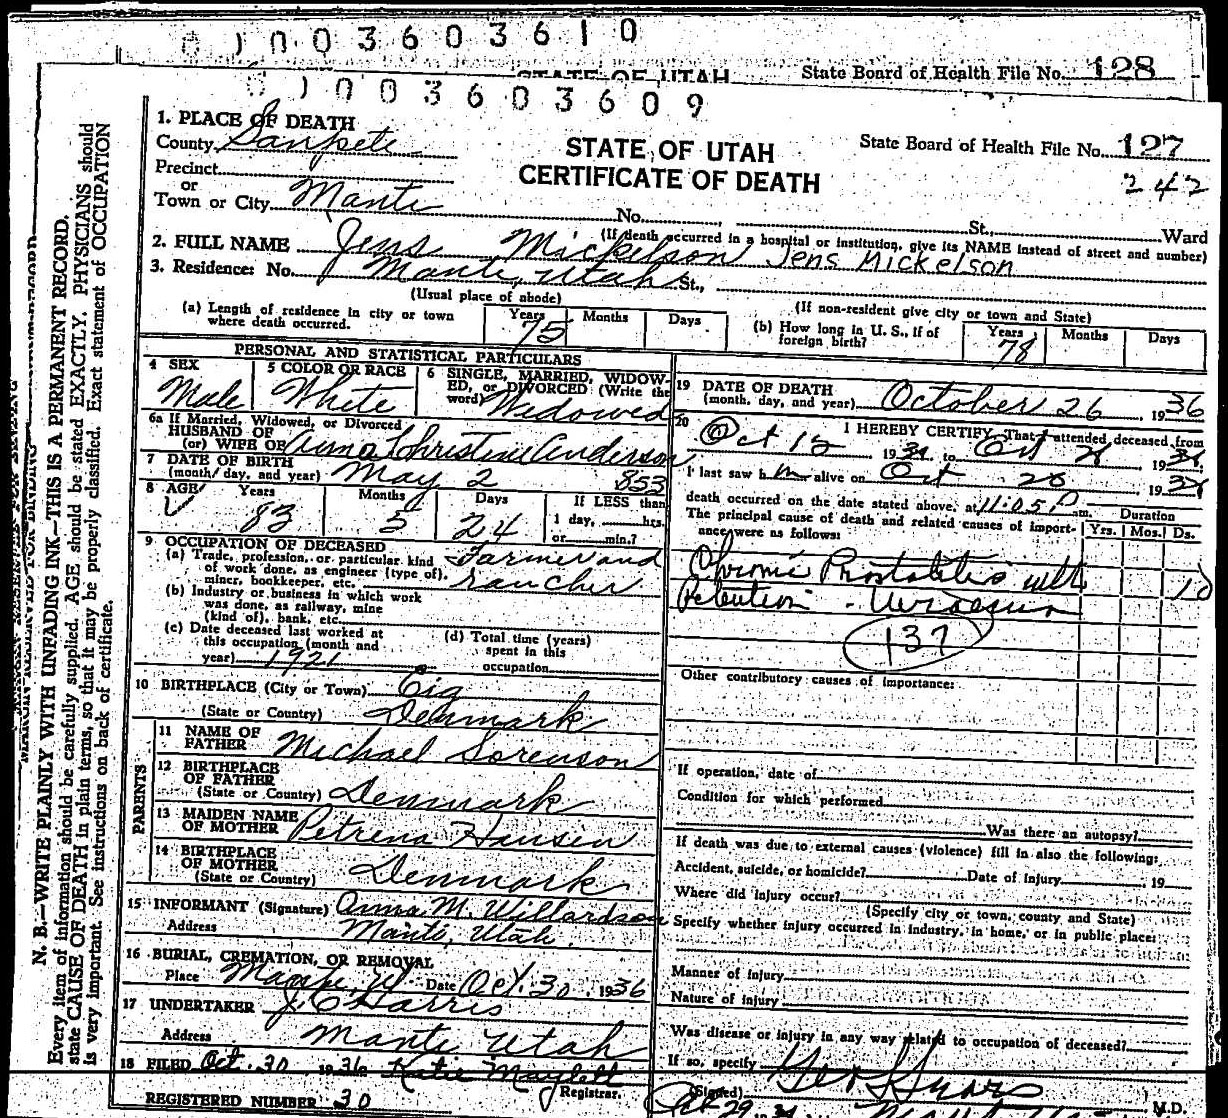 0 1 0 0 3 6 0 3 6 1 0
STATE OF UTAH State Board of Health File No. 128
0 1 0 0 3 6 0 3 6 0 9
1. PLACE OF DEATH
County Sanpete
STATE OF UTAH
State Board of Health File No. 127
Precinct
CERTIFICATE OF DEATH
242
or
Town or City Manti No. St., Ward
(If death occurred in a hospital or institution, give its NAME instead of street and number)
2. FULL NAME Jens Mickelson Jens Mickelson
3. Residence: No. Manti, Utah St.,
(Usual place of abode) (If non-resident give city or town and State)
(a) Length of residence in city or town where death occurred. Years 75 Months Days
(b) How long in U. S., if of foreign birth? Years 78 Months Days
PERSONAL AND STATISTICAL PARTICULARS
4 SEX Male
5 COLOR OR RACE White
6 SINGLE, MARRIED, WIDOWED, or DIVORCED (Write the word) Widowed
6a If Married, Widowed, or Divorced
HUSBAND OF
(or) WIFE OF Anna Christine Anderson
7 DATE OF BIRTH
(month, day, and year) May 2 853
8 AGE Years 83 Months 5 Days 24 If LESS than 1 day, hrs. or min.?
9 OCCUPATION OF DECEASED
(a) Trade, profession, or particular kind of work done, as engineer (type of), miner, bookkeeper, etc. Farmer and rancher
(b) Industry or business in which work was done, as railway, mine (kind of), bank, etc.
(c) Date deceased last worked at this occupation (month and year) 1921
(d) Total time (years) spent in this occupation
10 BIRTHPLACE (City or Town)
(State or Country) Denmark
PARENTS
11 NAME OF FATHER Michael Sorenson
12 BIRTHPLACE OF FATHER
(State or Country) Denmark
13 MAIDEN NAME OF MOTHER Petrena Hansen
14 BIRTHPLACE OF MOTHER
(State or Country) Denmark
15 INFORMANT (Signature) Anna M. Willardson
Address Manti, Utah.
16 BURIAL, CREMATION, OR REMOVAL
Place Date Oct. 30 1936
17 UNDERTAKER J. C. Harris
Address Manti Utah
18 FILED Oct. 30 1936 Katie Maylett
Registrar.
REGISTERED NUMBER 30
19 DATE OF DEATH
(month, day, and year) October 26, 1936
20 I HEREBY CERTIFY, That I attended deceased from
Oct 19 to Oct 19
I last saw h im alive on Oct 19
death occurred on the date stated above, at 11:05 P m.
The principal cause of death and related causes of importance were as follows:
Duration
Yrs. Mos. Ds.
Chronic Prostatitis with 10
Retention -
137
Other contributory causes of importance:
If operation, date of
Condition for which performed
Was there an autopsy?
If death was due to external causes (violence) fill in also the following:
Accident, suicide, or homicide? Date of injury , 19
Where did injury occur?
(Specify city or town, county and State)
Specify whether injury occurred in industry, in home, or in public place:
Manner of injury
Nature of injury
Was disease or injury in any way related to occupation of deceased?
If so, specify
(Signed)
Oct 29 M.D.
N. B.—WRITE PLAINLY WITH UNFADING INK—THIS IS A PERMANENT RECORD.
Every item of information should be carefully supplied. AGE should be stated EXACTLY. PHYSICIANS should
state CAUSE OF DEATH in plain terms, so that it may be properly classified. Exact statement of OCCUPATION
is very important. See instructions on back of certificate.